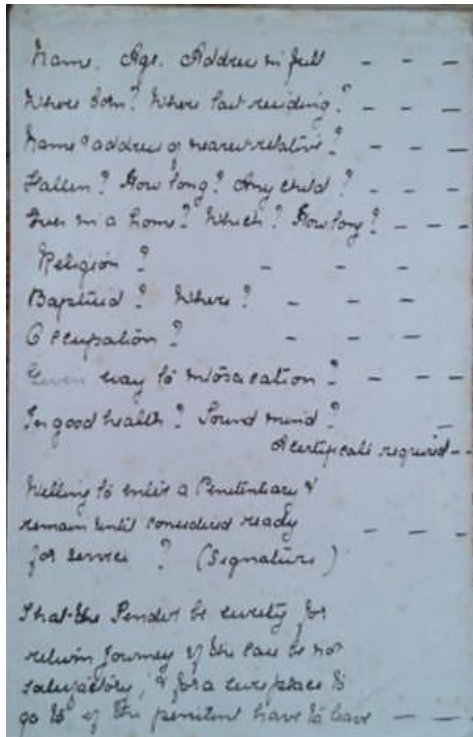 Name. Age. Address in full - - -
Where born? Where last residing? - - -
Name & address of nearest relative? - - -
Fallen? How long? Any child? - - -
Ever in a home? Which? How long? - - -
Religion? - - -
Baptised? Where? - - -
Occupation? - - -
Given way to intoxication? - - -
In good health? Sound mind? -
A certificate required - -
Willing to enter a Penitentiary &
remain until considered ready - - -
for service? (Signature)
That the Sender be surety for
return journey if the case be not
satisfactory, & for a sure place to
go to if the penitent have to leave - - -